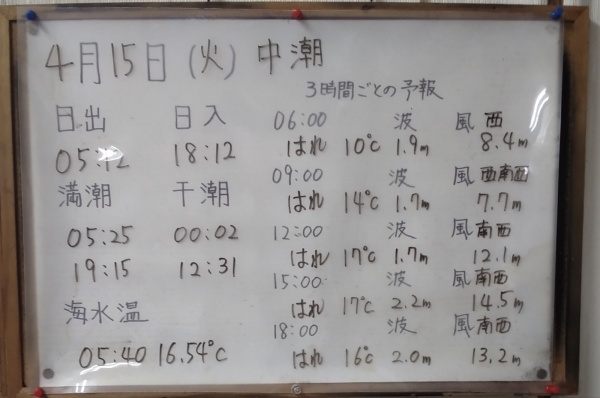 4月15日 (火) 中潮
3時間ごとの予報
日出 日入
05:12 18:12
満潮 干潮
05:25 00:02
19:15 12:31
海水温
05:40 16.54℃
06:00 波 風 西
はれ 10℃ 1.9m 8.4m
09:00 波 風 西南西
はれ 14℃ 1.7m 7.7m
12:00 波 風 南西
はれ 17℃ 1.7m 12.1m
15:00 波 風 南西
はれ 17℃ 2.2m 14.5m
18:00 波 風 南西
はれ 16℃ 2.0m 13.2m